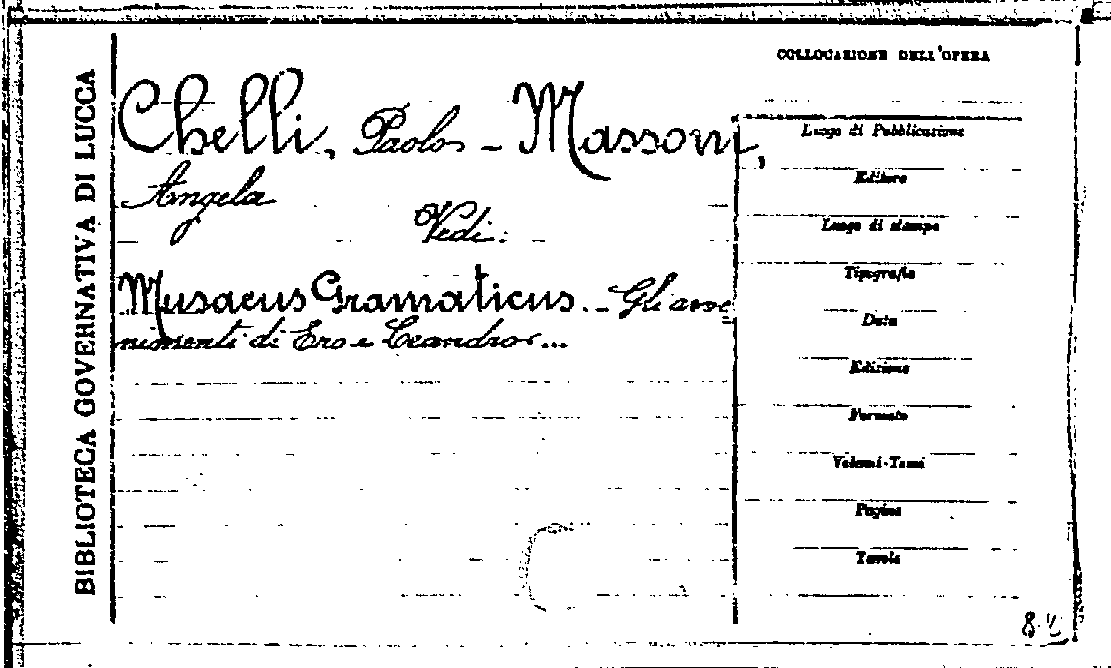 BIBLIOTECA GOVERNATIVA DI LUCCA
COLLOCAZIONE DELL'OPERA
Chelli, Paolo - Massoni,
Angela
Vedi:
Musaeus Gramaticus. - Gli avve
nimenti di Ero e Leandro...
Luogo di Pubblicazione
Editore
Luogo di stampa
Tipografia
Data
Edizione
Formato
Volumi-Tomi
Pagine
Tavole